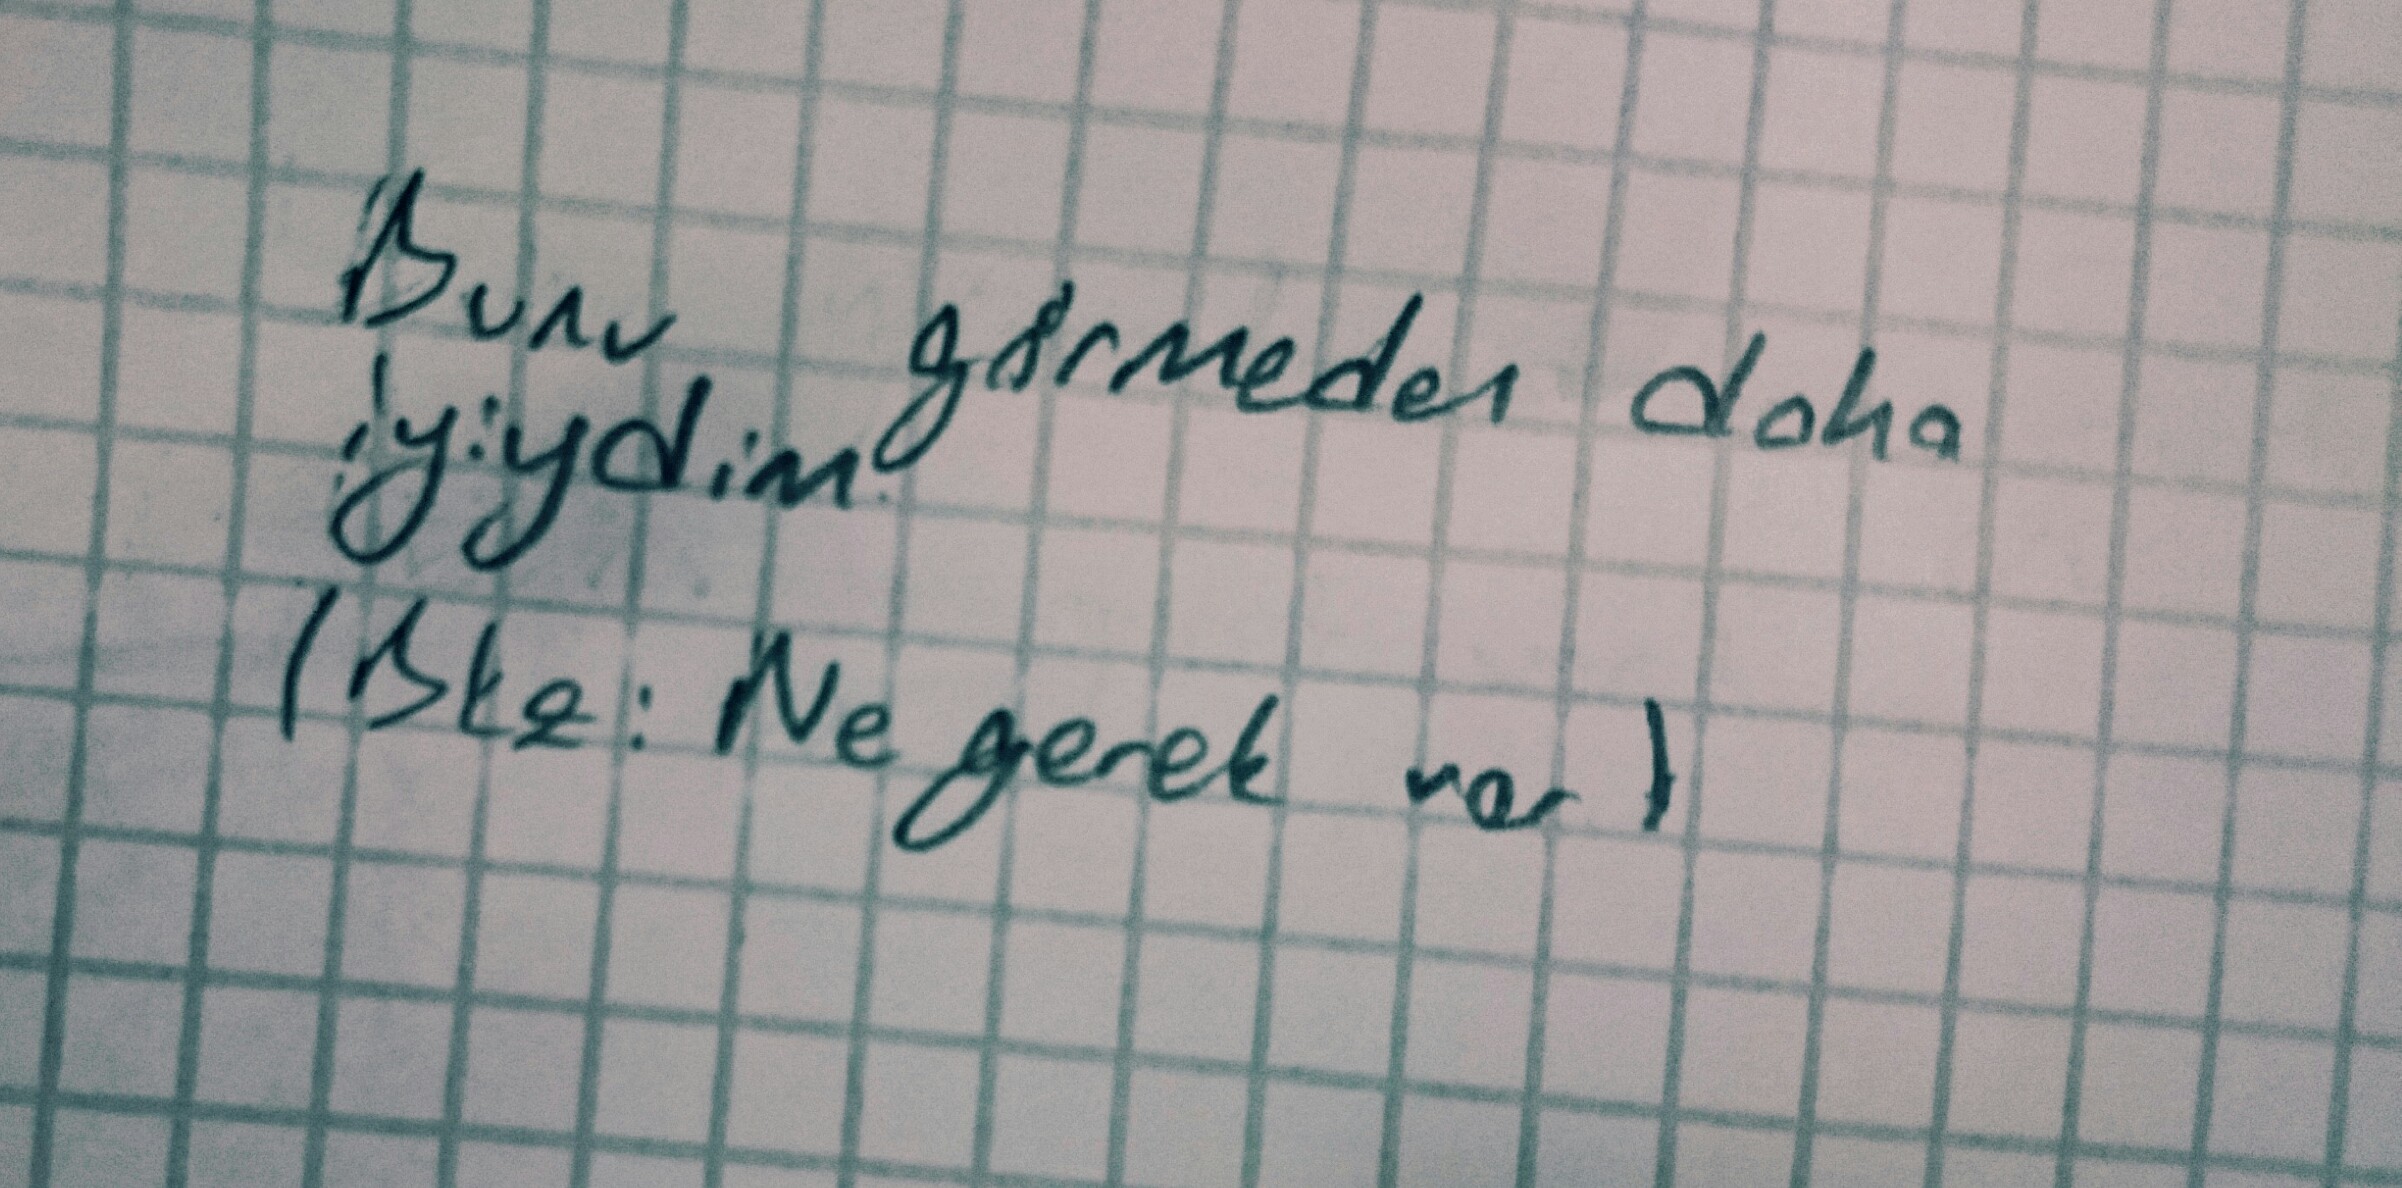 Bunu görmeden daha
iyiydim.
(Bkz: Ne gerek var)